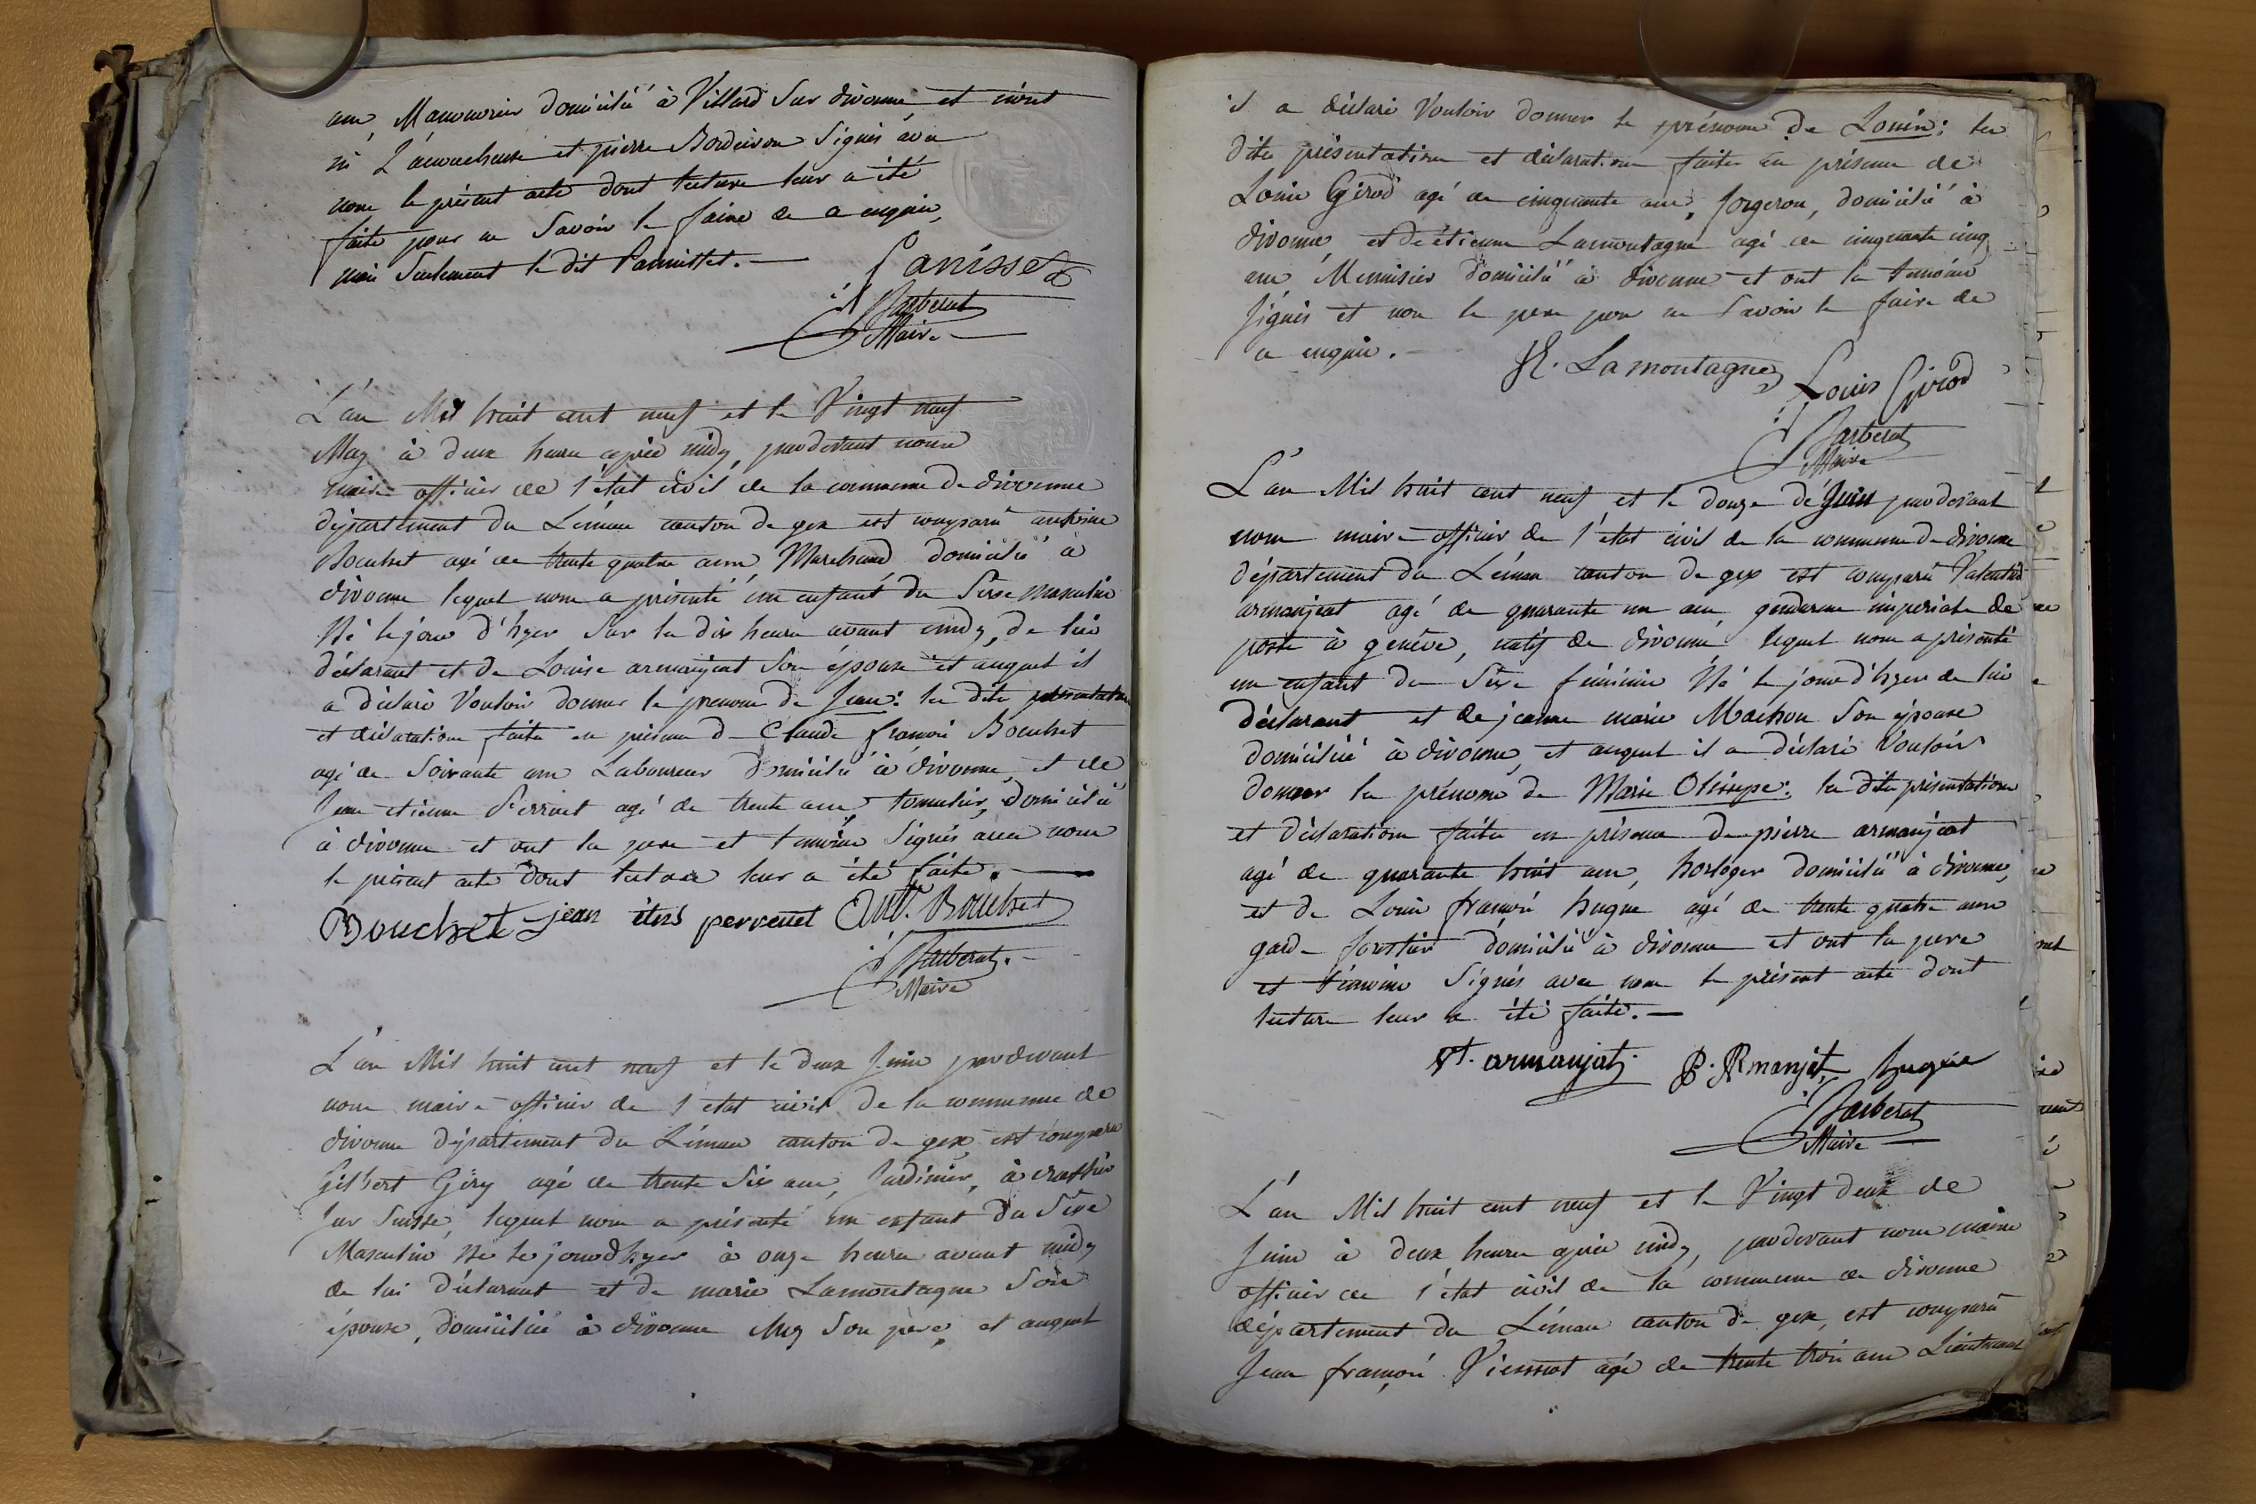 ans, Manouvrier domicilié à Villard Sur divonne et n'ont
ni L'acoucheuse et pierre Signés avec
nous le présent acte dont lecture leur a été
faite pour ne Savoir le faire de ce enquis,
mais Seulement le dit Pannisset. —
Panisset
Barberat
Maire
L'an Mil huit cent neuf et le Vingt neuf
May à deux heures après midy, pardevant nous
maire officier de l'état civil de la commune de divonne
département du Léman canton de gex est comparu antoine
Bouchet agé de trente quatre ans, Marchand domicilié à
divonne lequel nous a présenté un enfant du Sexe masculin
Né le jour d'hyer Sur les dix heures avant midy, de lui
déclarant et de Louise armanjeat Son épouse et auquel il
a déclaré Vouloir donner le prenom de Jean: les dite présentation
et déclaration faites en présence de Claude françois Bouchet
agé de Soixante ans Laboureur domicilié à divonne, et de
Jean etienne Perrinet agé de trente ans, tonnelier, domicilié
à divonne et ont les pere et temoins Signés avec nous
le présent acte dont lecture leur a été faite. —
Bouchet jean étins perrenet Ant. Bouchet
Barberat
Maire
L'an Mil huit cent neuf et le deux Juin pardevant
nous maire officier de l'état civil de la commune de
divonne département du Léman canton de gex est comparu
Gilbert Géry agé de trente Six ans, Jardinier, à crassier
Sur Suisse, lequel nous a présenté un enfant du Sexe
Masculin Né le jour d'hyer à onze heures avant midy
de lui déclarant et de marie Lamontagne Son
épouse, domiciliée à divonne chez Son père, et auquel
il a déclaré Vouloir donner le prénom de Louis: les
dites présentation et déclaration faites en présence de
Louis Girod agé de cinquante ans, forgeron, domicilié à
divonne, et de étienne Lamontagne agé de cinquante cinq
ans, Menuisier domicilié à divonne et ont les temoins
Signés et non le pere pour ne Savoir le faire de
ce enquis. —
E. Lamontagne
Louis Girod
Barberat
Maire
L'an Mil huit cent neuf et le douze de Juin pardevant
nous maire officier de l'état civil de la commune de divonne
département du Léman canton de gex est comparu Valentin
armanjeat agé de quarante un ans, gendarme imperiale de
poste à genève, natif de divonne, lequel nous a présenté
un enfant du Sexe féminin Né le jour d'hyer de lui
déclarant et de jeanne marie Machon Son épouse
domiciliée à divonne, et auquel il a déclaré Vouloir
donner les prénoms de Marie Olissipe: les dites présentation
et déclaration faites en présence de pierre armanjeat
agé de quarante huit ans, horloger domicilié à divonne,
et de Louis françois hugue agé de trente quatre ans
garde forestier domicilié à divonne et ont les pere
et témoins Signés avec nous le présent acte dont
lecture leur a été faite. —
Vt. armanjat
P. Armanjat
hugue
Barberat
Maire
L'an Mil huit cent neuf et le Vingt deux de
Juin à deux heures après midy, pardevant nous maire
officier de l'état civil de la commune de divonne
département du Léman canton de gex, est comparu
Jean françois agé de trente trois ans Lieutenant